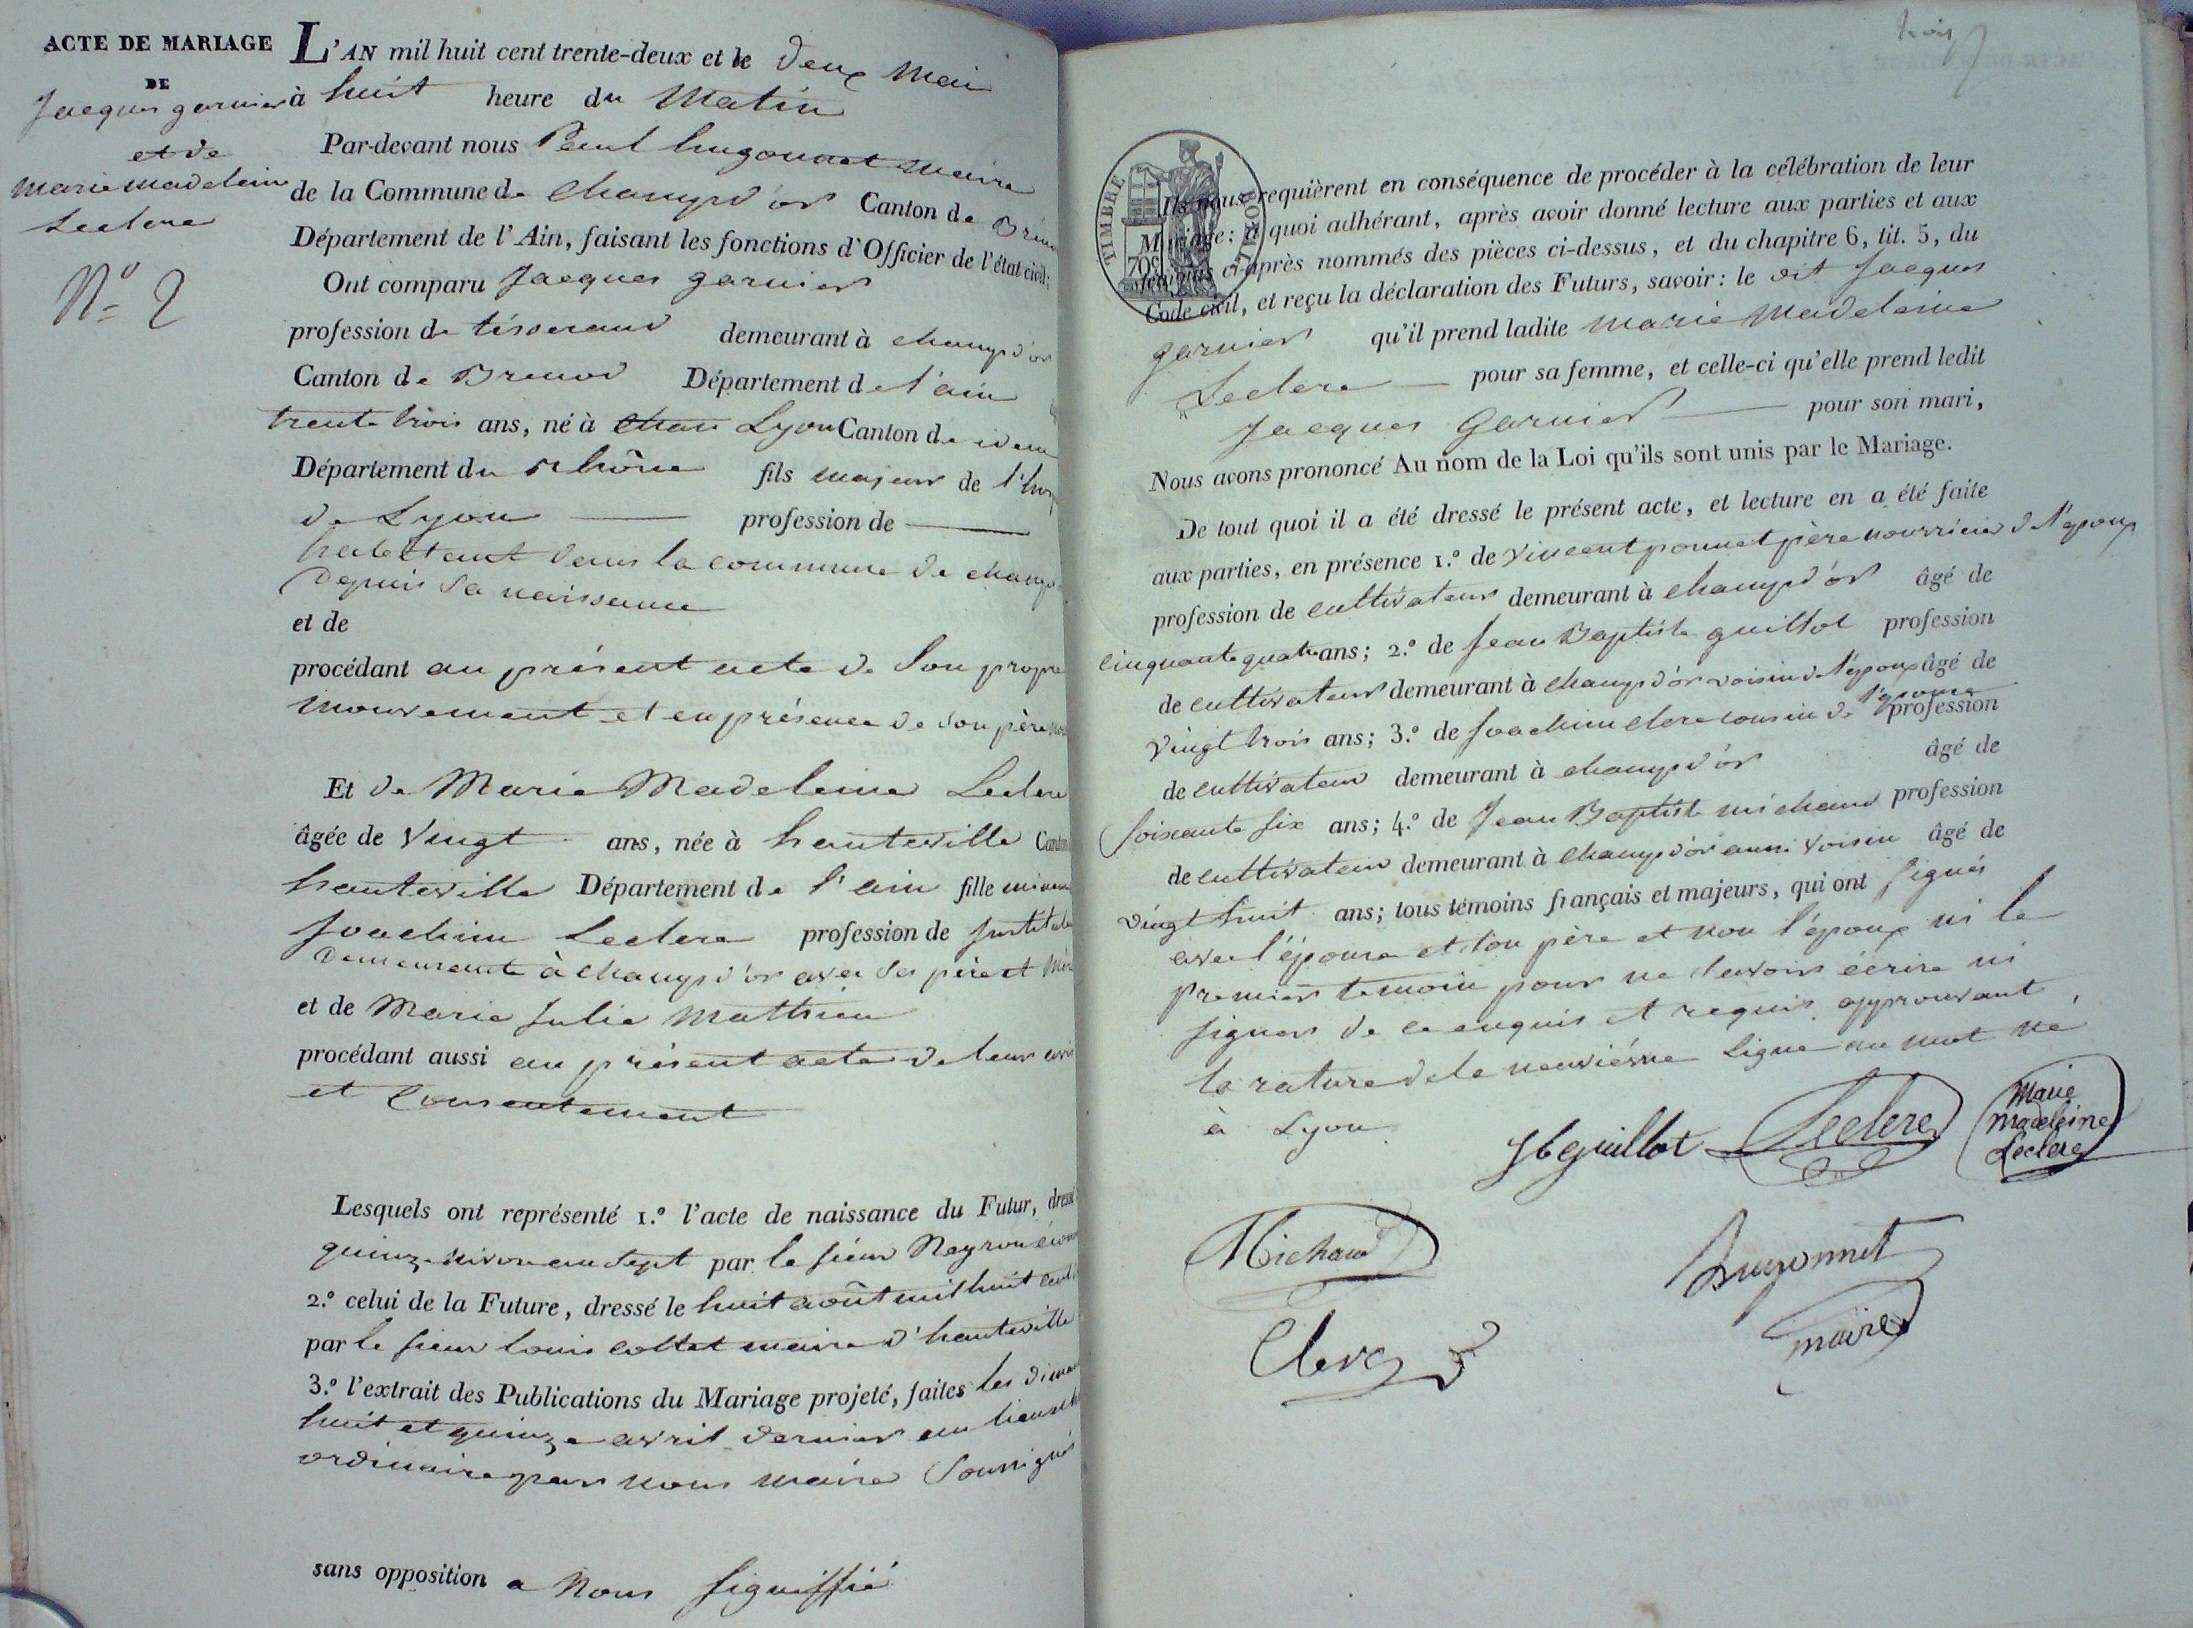 ACTE DE MARIAGE
DE
Jacques garnier
et de
marie madeleine
Leclerc
N° 2
L'AN mil huit cent trente-deux et le deux Mai
à huit heure du Matin
Par-devant nous Paul hugonnet maire
de la Commune de champd'or Canton de Brénod
Département de l'Ain, faisant les fonctions d'Officier de l'état civil;
Ont comparu Jacques garnier
profession de tisserand demeurant à champd'or
Canton de Brenod Département de l'ain
trente trois ans, né à Lyon Canton de idem
Département du rhône fils majeur de l'hosp
de Lyon profession de
habitant dans la commune de champd
depuis sa naissance
et de
procédant au présent acte de Son propre
mouvement et en présence de son père
Et de Marie Madeleine Leclerc
âgée de Vingt ans, née à hauteville Canton
hauteville Département de l'ain fille mineure
Joachim Leclerc profession de Institute
demeurante à champd'or avec ses père et Mère
et de Marie Julie Mathieu
procédant aussi au présent acte de leur avis
et Consentement
Lesquels ont représenté 1.º l'acte de naissance du Futur, dressé
quinze nivose an sept par le sieur Neyron
2.º celui de la Future, dressé le huit août mil huit cent
par le sieur louis collet maire d'hauteville
3.º l'extrait des Publications du Mariage projeté, faites les diman
huit et quinze avril dernier au lieu
ordinaire par nous maire Soussigné
sans opposition a Nous signiffié
trois
TIMBRE ROYAL
70c
Ils nous requièrent en conséquence de procéder à la célébration de leur
Mariage: à quoi adhérant, après avoir donné lecture aux parties et aux
témoins ci-après nommés des pièces ci-dessus, et du chapitre 6, tit. 5, du
Code civil, et reçu la déclaration des Futurs, savoir: le dit Jacques
garnier qu'il prend ladite marie Madeleine
Leclerc pour sa femme, et celle-ci qu'elle prend ledit
Jacques Garnier pour son mari,
Nous avons prononcé Au nom de la Loi qu'ils sont unis par le Mariage.
De tout quoi il a été dressé le présent acte, et lecture en a été faite
aux parties, en présence 1.º de vincent ponnet père nourricier de l'époux
profession de cultivateur demeurant à champd'or âgé de
cinquante quatre ans; 2.º de Jean Baptiste guillot profession
de cultivateur demeurant à champd'or voisin de l'époux âgé de
vingt trois ans; 3.º de Joachim clerc cousin de l'épouse profession
de cultivateur demeurant à champd'or âgé de
soixante six ans; 4.º de Jean Baptiste michaud profession
de cultivateur demeurant à champd'or aussi voisin âgé de
vingt huit ans; tous témoins français et majeurs, qui ont signés
avec l'épouse et son père et non l'époux ni le
premier temoin pour ne savoir écrire ni
signer de ce enquis et requis, approuvant
la rature de la neuvième ligne au mot né
à Lyon
JB guillot Leclerc Marie
Madeleine
Leclerc
Michaud
hugonnet
maire
Clerc